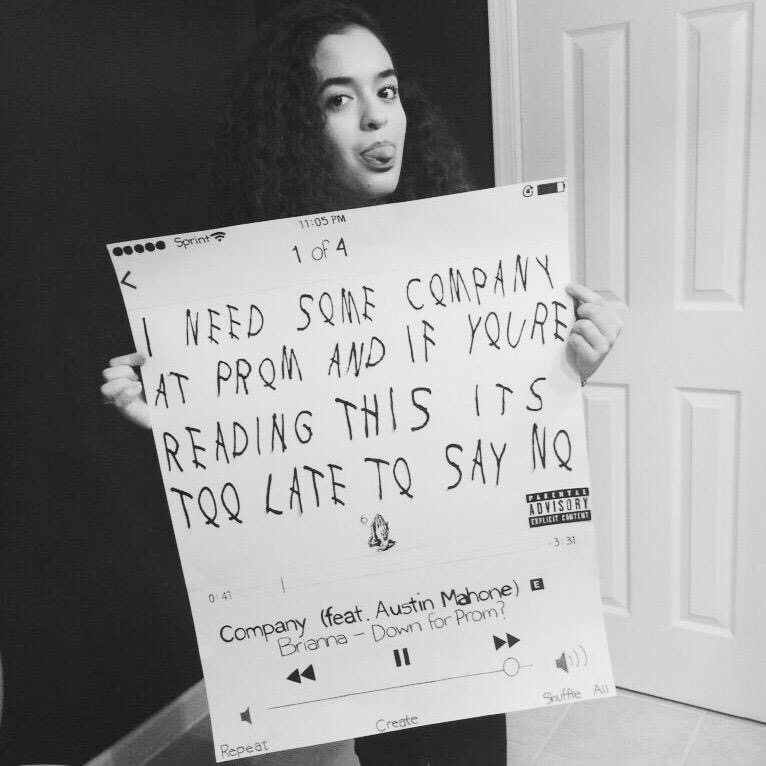 Sprint 11:05 PM
1 of 4
I NEED SOME COMPANY
AT PROM AND IF YOURE
READING THIS ITS
TOO LATE TO SAY NO
6
PARENTAL
ADVISORY
EXPLICIT CONTENT
0:41 -3:31
Company (feat. Austin Mahone) E
Brianna - Down for Prom?
Repeat Create Shuffle All